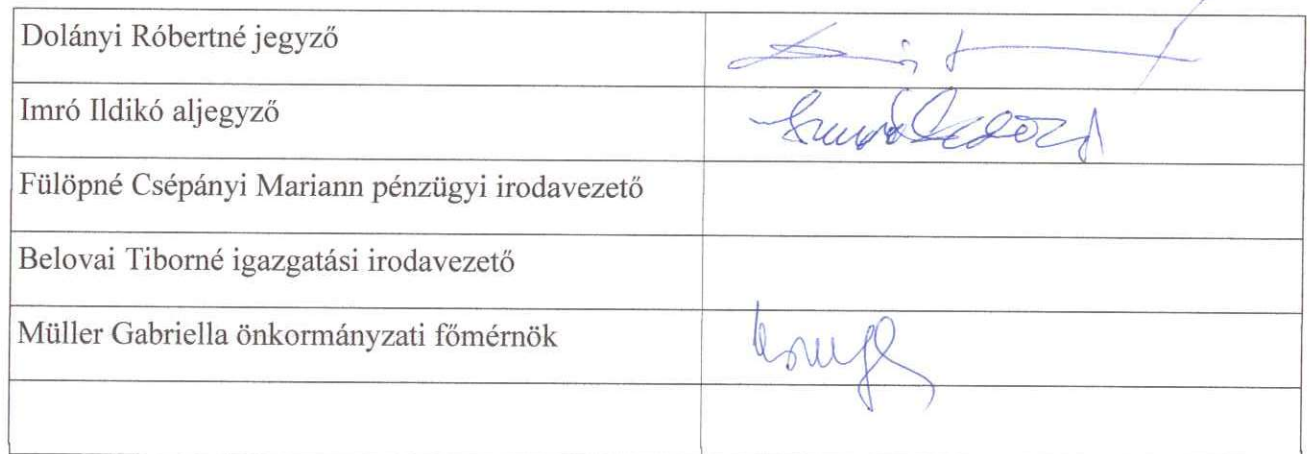 Dolányi Róbertné jegyző
Imró Ildikó aljegyző
Fülöpné Csépányi Mariann pénzügyi irodavezető
Belovai Tiborné igazgatási irodavezető
Müller Gabriella önkormányzati főmérnök